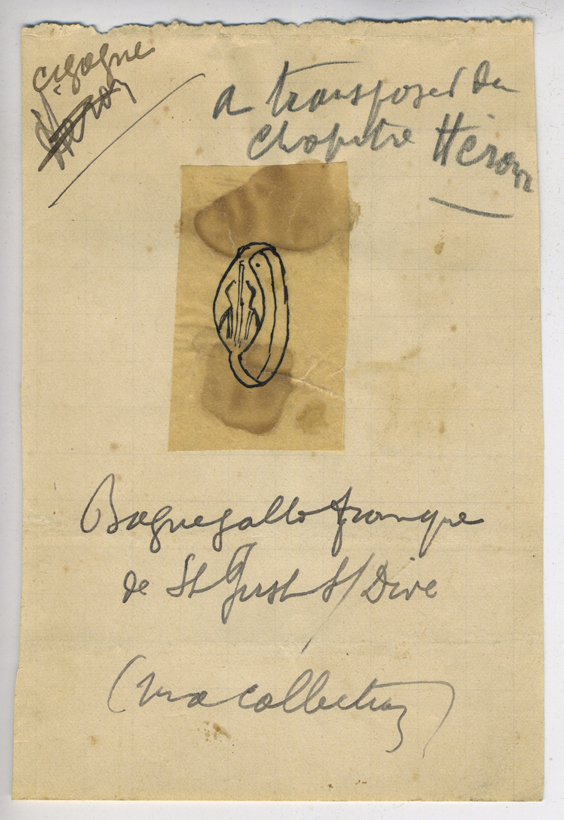 cigogne
Héron
a transposer du
chapitre Héron
Bague gallo franque
de St Just s/ Dive
(ma collection)